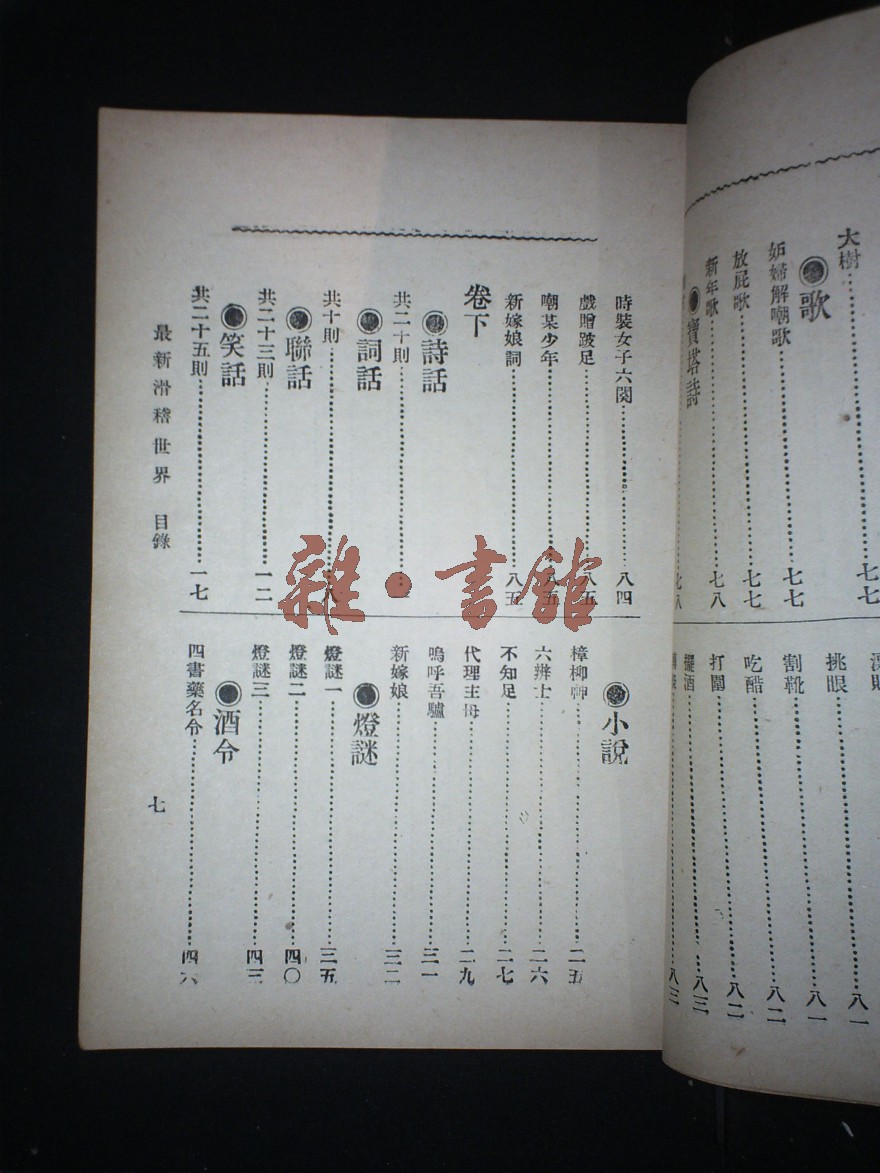 大樹……七七
●歌
妒婦解嘲歌……七七
放屁歌……七七
新年歌……七八
●寶塔詩
七八
挑眼……八一
割靴……八二
吃酷……八二
打圍……八三
擺酒……八三
時裝女子六闋……八四
戲贈跛足……八五
嘲某少年……八五
新嫁娘詞……八五
卷下
●詩話
共二十則……
●詞話
共十則……八
●聯話
共二十三則……一二
●笑話
共二十五則……一七
●小說
樟柳神……二五
六辨士……二六
不知足……二七
代理主母……二九
嗚呼吾驢……三一
新嫁娘……三二
●燈謎
燈謎一……三五
燈謎二……四〇
燈謎三……四三
●酒令
四書藥名令……四六
最新滑稽世界 目錄
七
雜·書館